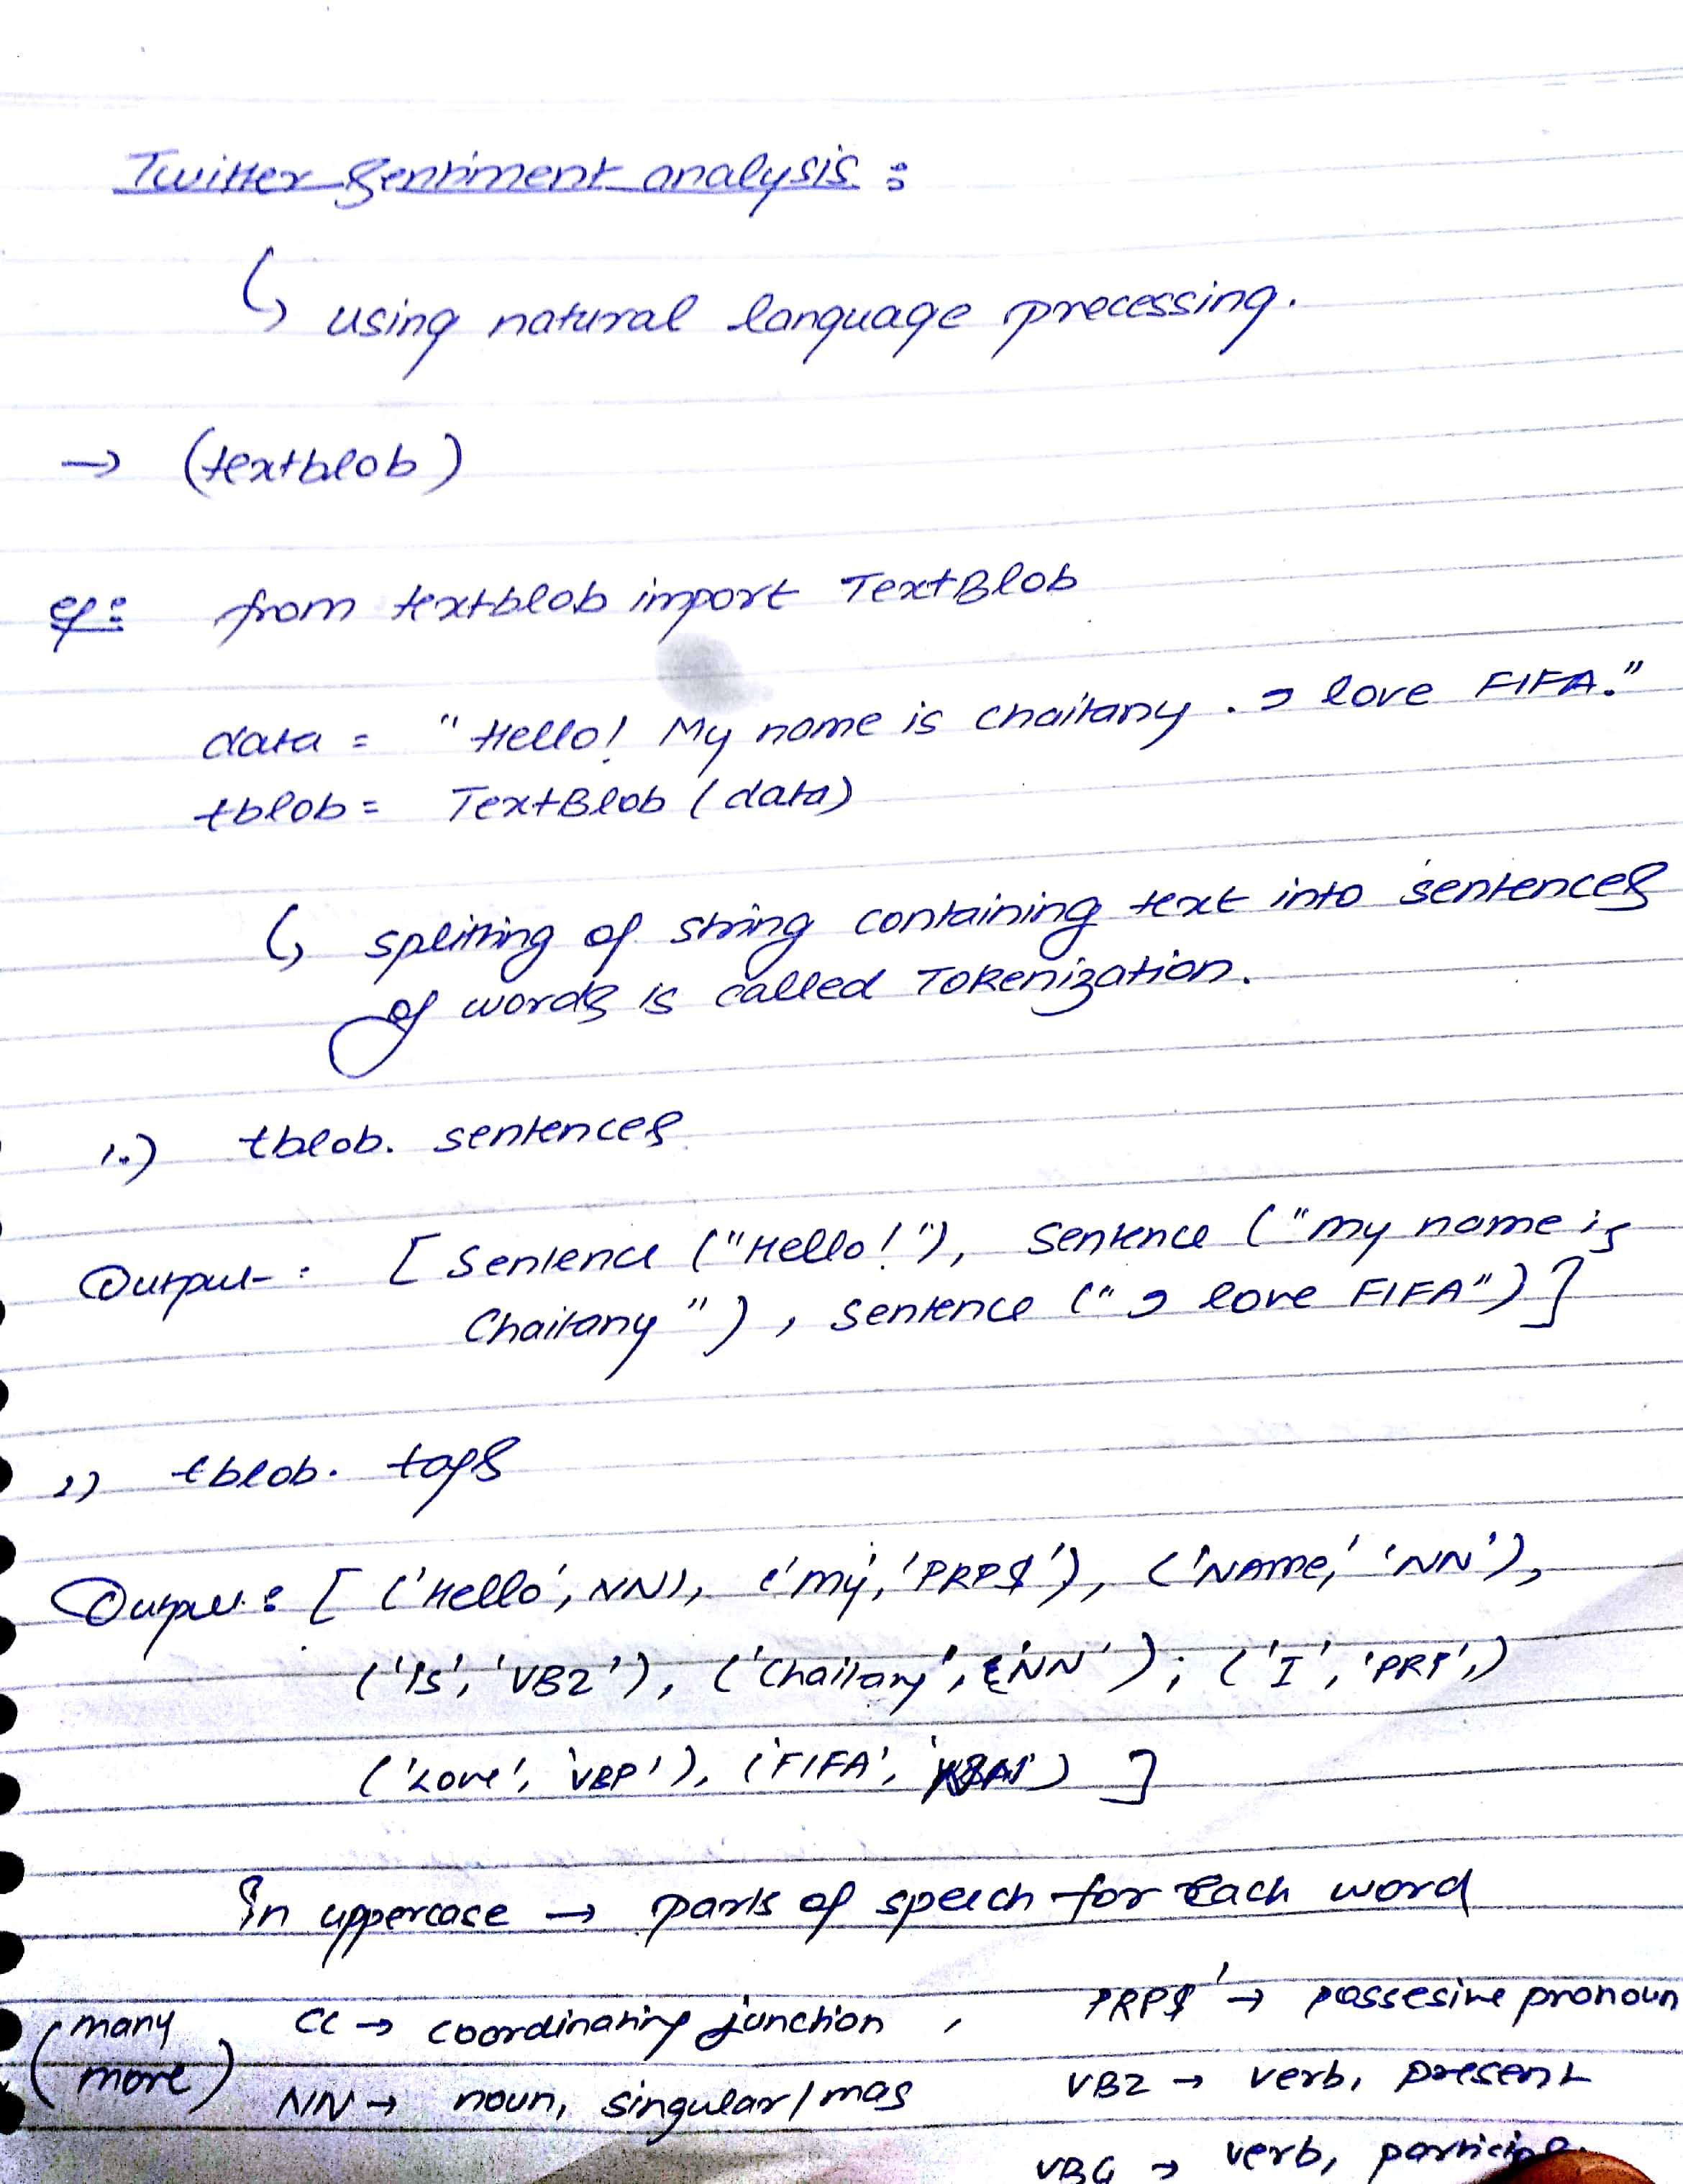 Twitter Sentiment analysis :
↳ using natural language precessing.
→ (textblob)
eg: from textblob import TextBlob
data = "Hello! My name is Chaitany. I love FIFA."
tblob = TextBlob (data)
↳ splitting of string containing text into sentences
of words is called Tokenization.
1.) tblob. sentences
Output : [ Sentence ("Hello!"), Sentence ("my name is
Chaitany"), Sentence ("I love FIFA")]
2) tblob. tags
Output : [ ('Hello', NN), ('my', 'PRP$'), ('NAme', 'NN'),
('Is', 'VBZ'), ('Chaitany', 'NN'), ('I', 'PRP',)
('Love', 'VBP'), ('FIFA', ) ]
In uppercase → parts of speech for each word
(many more) CC → coordinating junction , PRP$' → possesine pronoun
NN → noun, singular/mas VBZ → verb, present
VBG → verb,